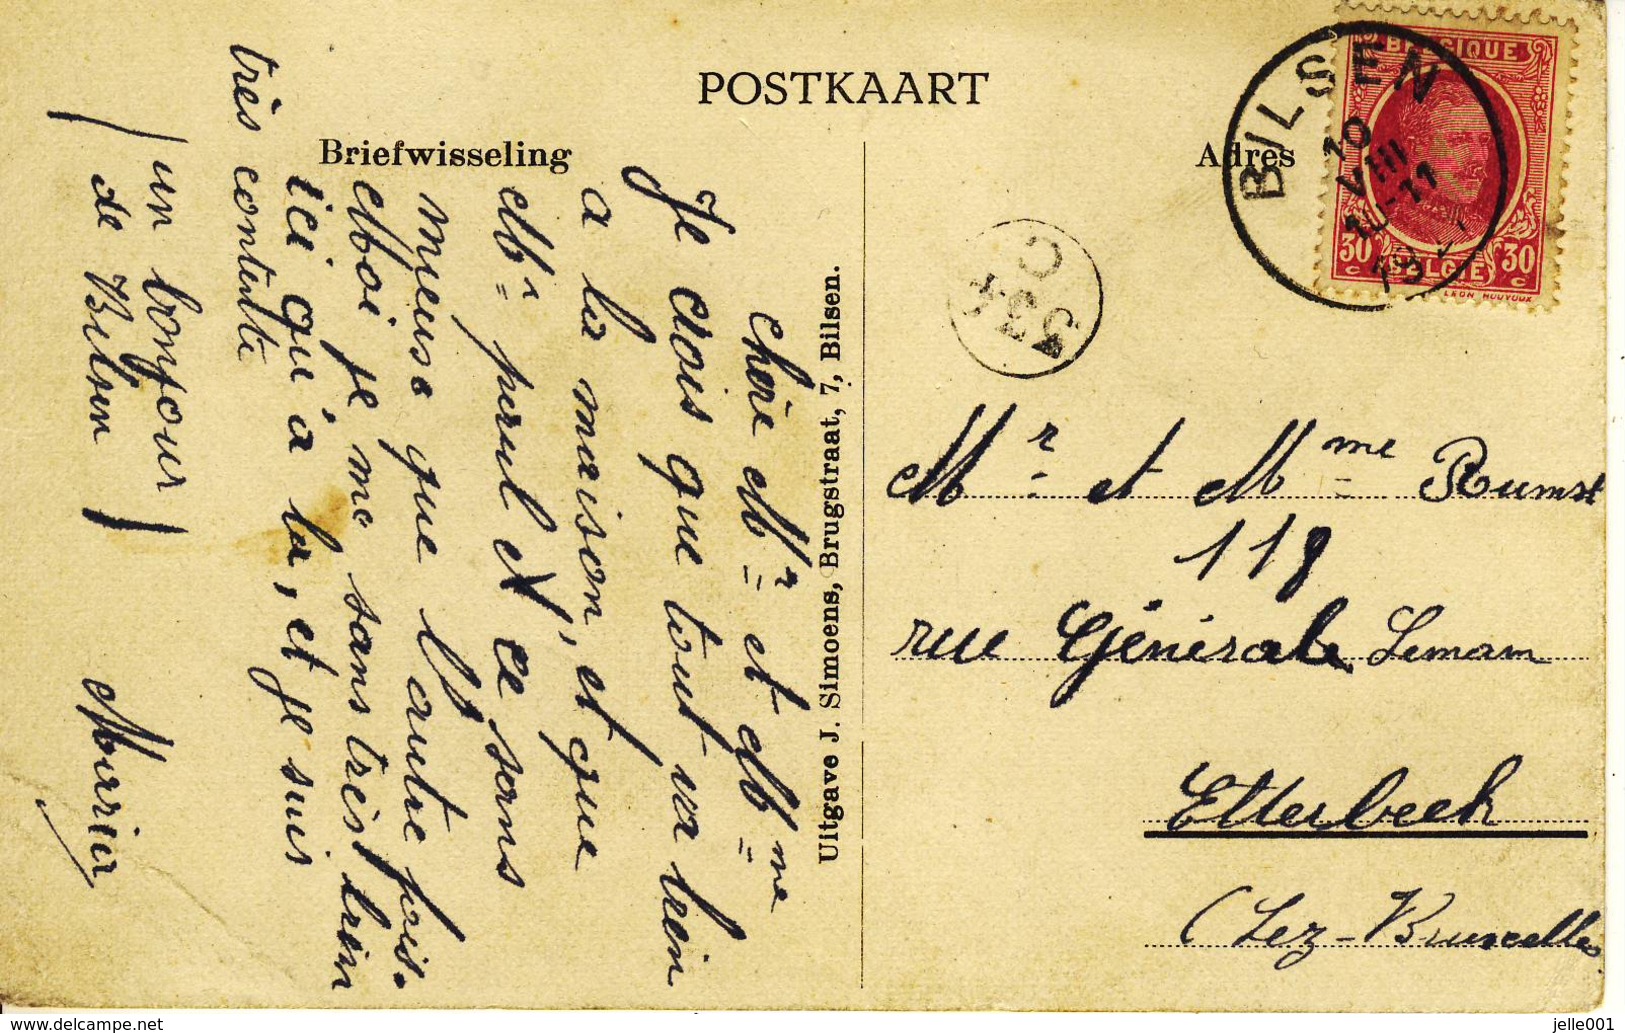 POSTKAART
Briefwisseling
Adres
BELGIQUE
30 30
C BELGIE C
LEON HOUYOUX
BILSEN
10
VIII
10-11
19
334
C
Uitgave J. Simoens, Brugstraat, 7, Bilsen.
Mr et Mme Rumst
118
rue Générale Leman
Etterbeek
(Lez-Bruxelles
chère Mr et Mme
Je crois que tout va bien
a la maison, et que
Mr ce sens
mieux que l'autre fois.
Moi je me sans très bien
ici qu'a la, et je suis
très contente
(un bonjour)
(de Bilsen)
Maria
delcampe.net
jelle001